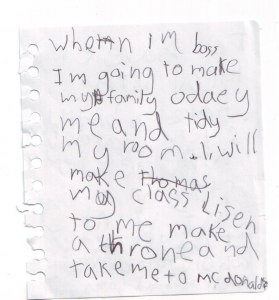 When I m boss
I m going to make
my family odaey
me and tidy
my room. I, will
make thomas
my class Lisen
to me make
a throne and
take me to mcdonalds